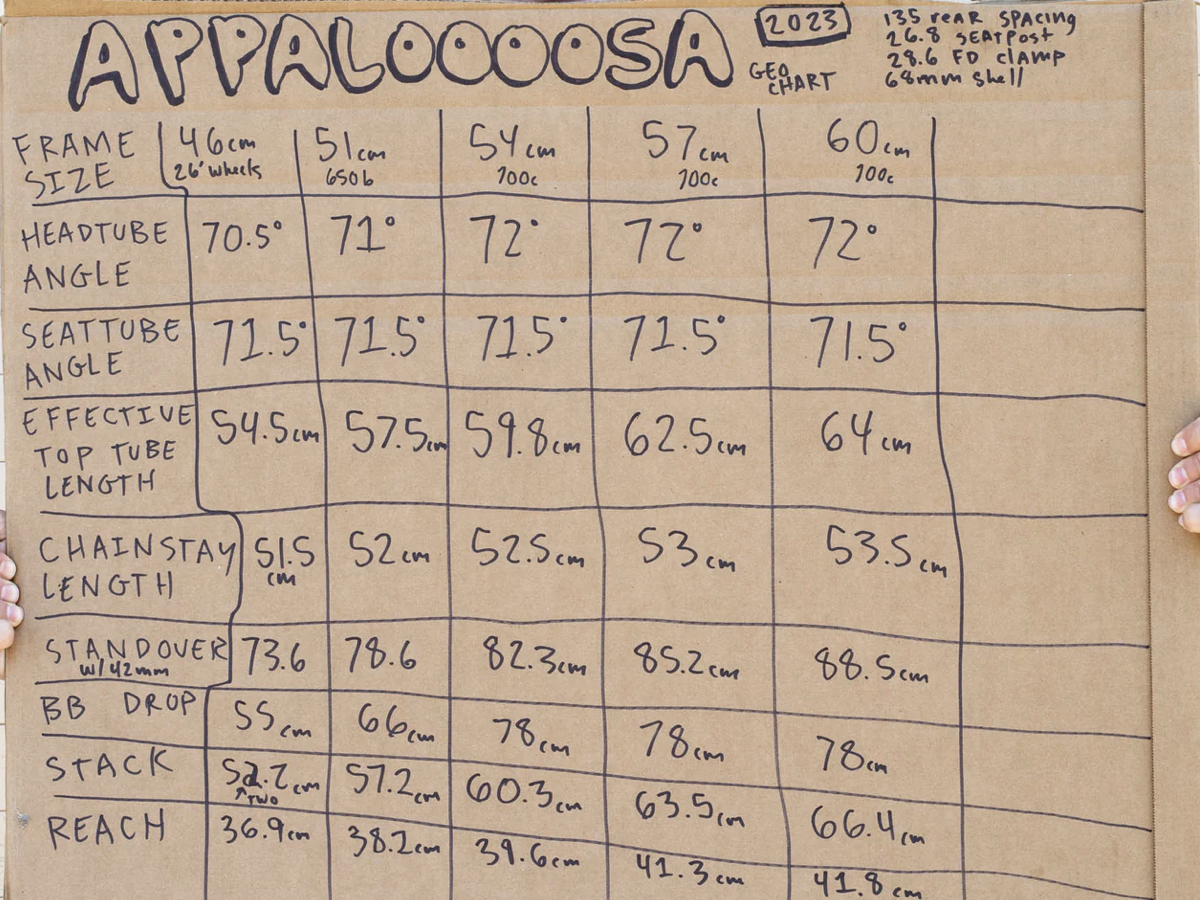 APPALOOOOSA
2023
GEO
CHART
135 reAR SPACING
26.8 SEATPOST
28.6 FD clAMP
68mm Shell
FRAME SIZE 46cm 51cm 54cm 57cm 60cm
26" wheels 650b 700c 700c 700c
HEADTUBE ANGLE 70.5° 71° 72° 72° 72°
SEATTUBE ANGLE 71.5° 71.5° 71.5° 71.5° 71.5°
EFFECTIVE TOP TUBE LENGTH 54.5cm 57.5cm 59.8cm 62.5cm 64cm
CHAINSTAY LENGTH 51.5 cm 52cm 52.5cm 53cm 53.5cm
STANDOVER w/42mm 73.6 78.6 82.3cm 85.2cm 88.5cm
BB DROP 55cm 66cm 78cm 78cm 78cm
STACK 52.2cm 57.2cm 60.3cm 63.5cm 66.4cm
↑TWO
REACH 36.9cm 38.2cm 39.6cm 41.3cm 41.8cm